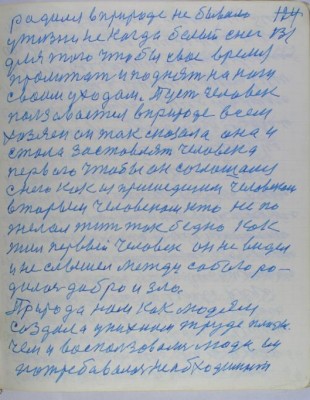 родился в природе не бывало 124
у жизни не когда белый снег в
для того чтобы свое время
промотат и поднят на ногу
своим уходом. Пуст человек
ползовается в природе всем
хозяен он так сказала она и
стала заставлят человека
первого чтобы он соглошался
с нею как и пришедшим человеком
вторым человеком кто не по
желал жит так бедно как
жил первый человек он не видел
и не слышел между собою ро-
дилося добро и зло.
Природа нам как людям
создала у жизни труде
чем и воспользовалис люди им
потребавалася необходимост